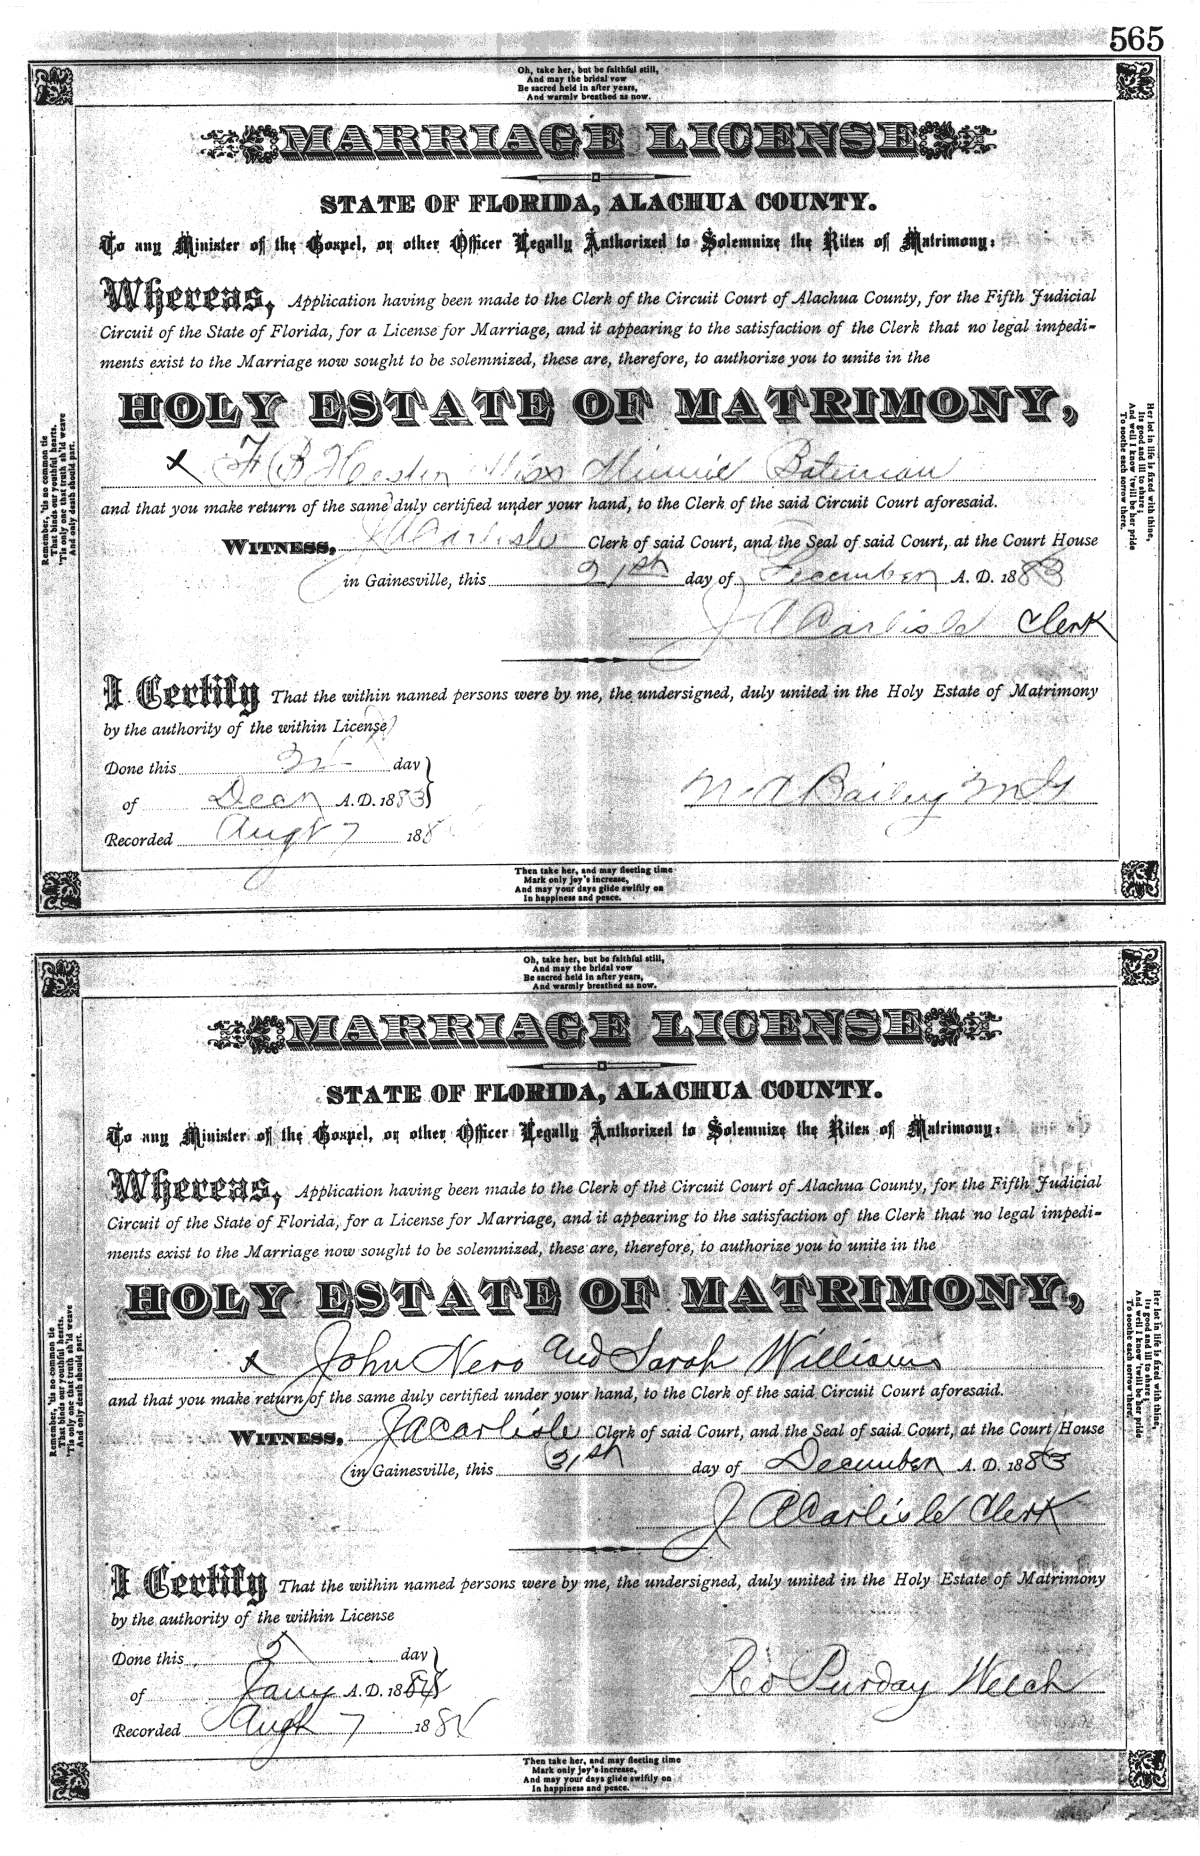 565
Oh, take her, but be faithful still,
And may the bridal vow
Be sacred held in after years,
And warmly breathed as now.
MARRIAGE LICENSE
STATE OF FLORIDA, ALACHUA COUNTY.
To any Minister of the Gospel, or other Officer Legally Authorized to Solemnize the Rites of Matrimony:
Whereas, Application having been made to the Clerk of the Circuit Court of Alachua County, for the Fifth Judicial
Circuit of the State of Florida, for a License for Marriage, and it appearing to the satisfaction of the Clerk that no legal impedi-
ments exist to the Marriage now sought to be solemnized, these are, therefore, to authorize you to unite in the
HOLY ESTATE OF MATRIMONY,
x F B Miss Minnie Bateman
and that you make return of the same duly certified under your hand, to the Clerk of the said Circuit Court aforesaid.
WITNESS, J A Carlisle Clerk of said Court, and the Seal of said Court, at the Court House
in Gainesville, this 21st day of December A. D. 1883
J A Carlisle Clerk
I Certify That the within named persons were by me, the undersigned, duly united in the Holy Estate of Matrimony
by the authority of the within License
Done this day
of Decr A. D. 1883
Recorded Augt 7 188
Bailey
Then take her, and may fleeting time
Mark only joy's increase,
And may your days glide swiftly on
In happiness and peace.
Remember, 'tis no common tie
That binds our youthful hearts.
'Tis only one that truth sh'ld weave
And only death should part.
Her lot in life is fixed with thine,
Its good and ill to share;
And well I know 'twill be her pride
To soothe each sorrow there.
Oh, take her, but be faithful still,
And may the bridal vow
Be sacred held in after years,
And warmly breathed as now.
MARRIAGE LICENSE
STATE OF FLORIDA, ALACHUA COUNTY.
To any Minister of the Gospel, or other Officer Legally Authorized to Solemnize the Rites of Matrimony:
Whereas, Application having been made to the Clerk of the Circuit Court of Alachua County, for the Fifth Judicial
Circuit of the State of Florida, for a License for Marriage, and it appearing to the satisfaction of the Clerk that no legal impedi-
ments exist to the Marriage now sought to be solemnized, these are, therefore, to authorize you to unite in the
HOLY ESTATE OF MATRIMONY,
x John Nero and Sarah Williams
and that you make return of the same duly certified under your hand, to the Clerk of the said Circuit Court aforesaid.
WITNESS, J A Carlisle Clerk of said Court, and the Seal of said Court, at the Court House
in Gainesville, this 31st day of December A. D. 1883
J A Carlisle Clerk
I Certify That the within named persons were by me, the undersigned, duly united in the Holy Estate of Matrimony
by the authority of the within License
Done this 5 day
of Jany A. D. 1884
Recorded Augt 7 188
Rev Purday Welch
Then take her, and may fleeting time
Mark only joy's increase,
And may your days glide swiftly on
In happiness and peace.
Remember, 'tis no common tie
That binds our youthful hearts.
'Tis only one that truth sh'ld weave
And only death should part.
Her lot in life is fixed with thine,
Its good and ill to share;
And well I know 'twill be her pride
To soothe each sorrow there.